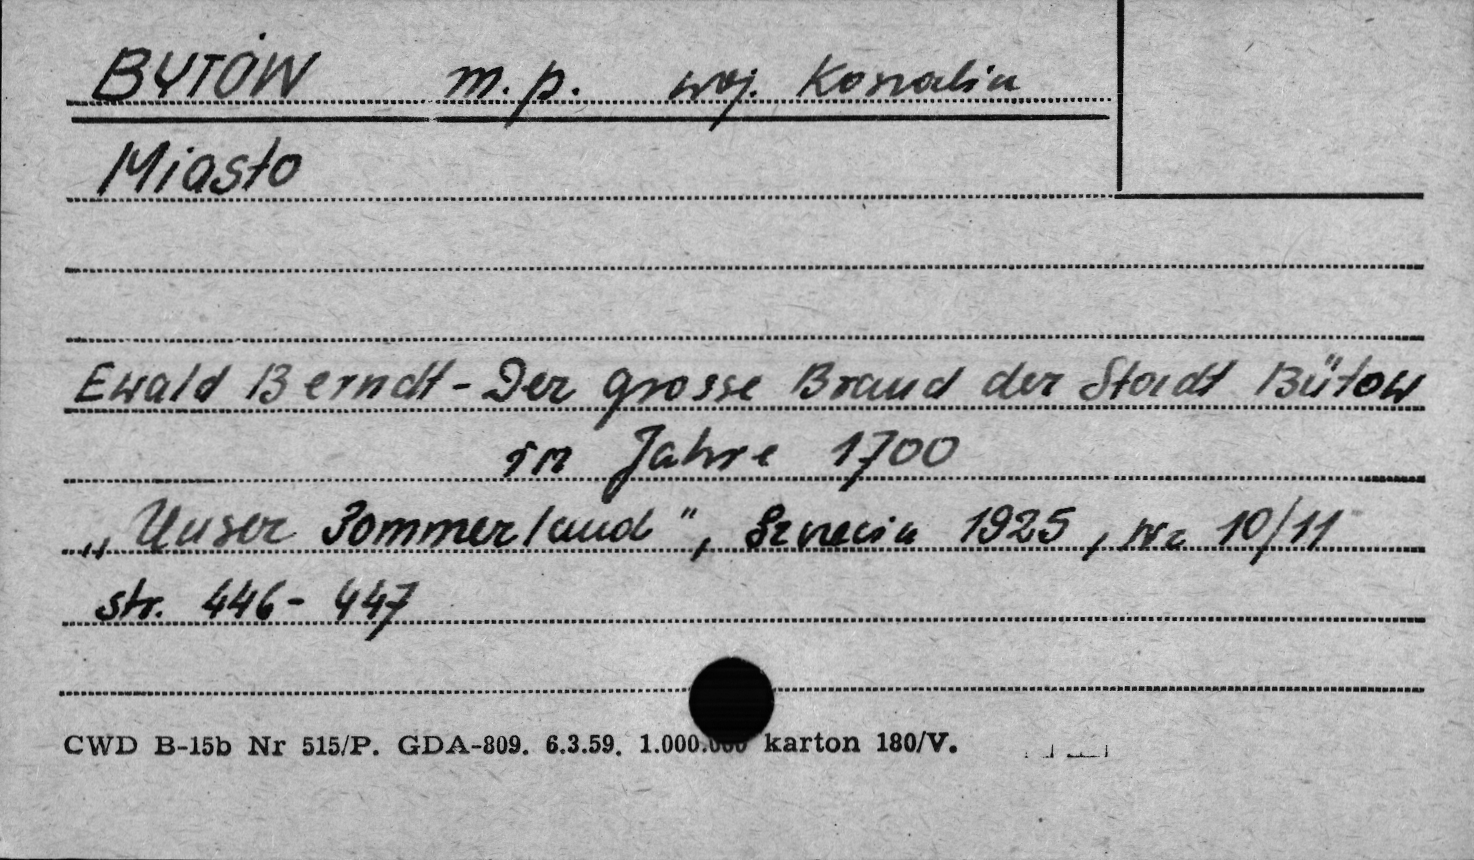 BYTÓW m.p. woj. Koszalin
Miasto
Ewald Berndt - Der grosse Brand der Stadt Bütow
im Jahre 1700
„Unser Pommerland", Szczecin 1925, Nr 10/11
str. 446-447
CWD B-15b Nr 515/P. GDA-809. 6.3.59. 1.000.000 karton 180/V.